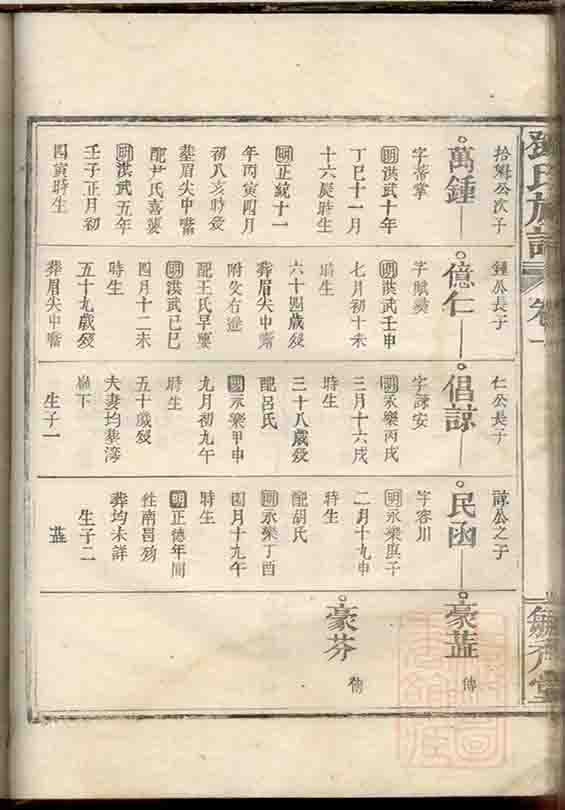 氏族譜 卷一
拾翱公次子
萬鍾
字蕃掌
明洪武十年
丁巳十一月
十六辰時生
明正統十一
年丙寅四月
初八亥時歿
墓眉尖中嘴
配尹氏喜婆
明洪武五年
壬子正月初
四寅時生
鍾公長子
億仁
字賦
明洪武壬申
七月初十未
時生
六十四歲歿
葬眉尖中嘴
附父右邊
配王氏早娶
明洪武己巳
四月十二未
時生
五十九歲歿
葬眉尖中嘴
仁公長子
倡諒
字諫安
明永樂丙戌
三月十六戌
時生
三十八歲歿
配呂氏
明永樂甲申
九月初九午
時生
五十歲歿
夫妻均葬湾
下
生子一
諒公之子
民函
字容川
明永樂庚子
二月十九申
時生
配胡氏
明永樂丁酉
四月十九午
時生
明正德年間
往南昌歿
葬均未詳
生子二
豪藍
傳
豪芬
傳